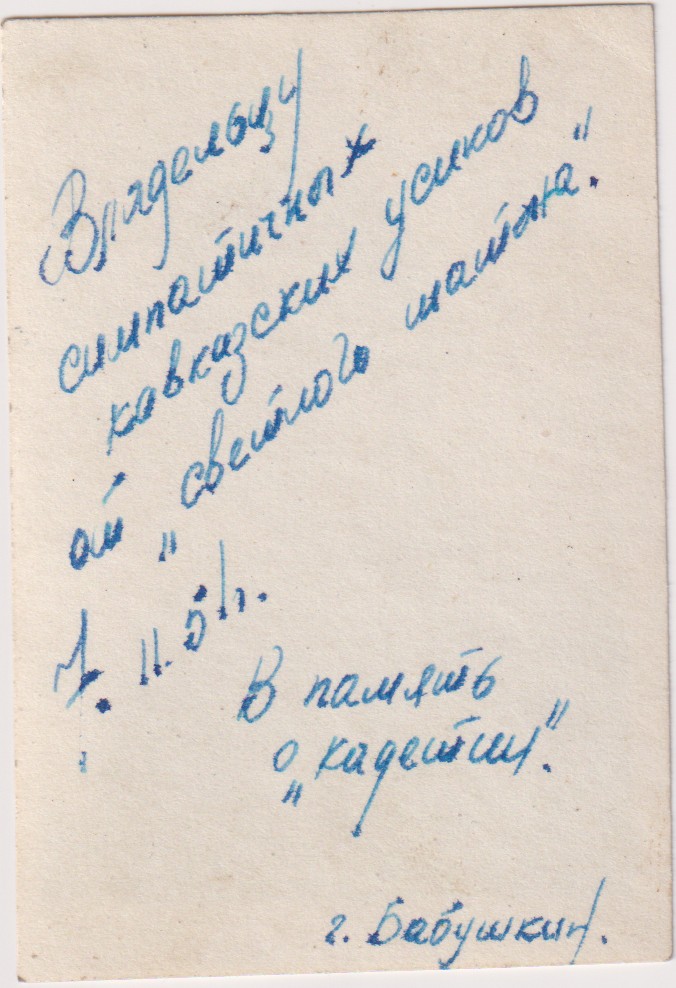 Владельцу
симпатичных
кавказских усиков
от „светлого шатена".
7. II. 51г.
В память
о „кадетии".
г. Бабушкин.